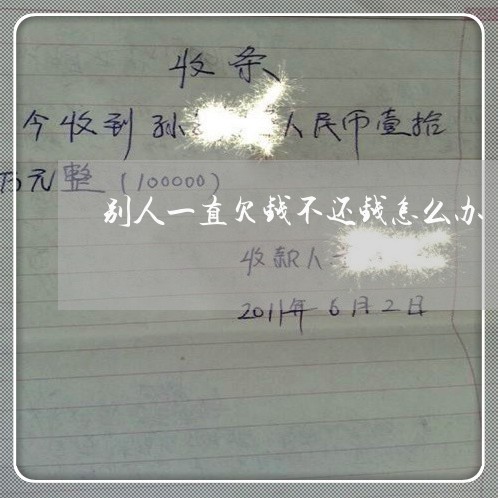 收条
今收到孙 人民币壹拾
万元整（100000）
别人一直欠钱不还钱怎么办
收款人
2011年6月2日